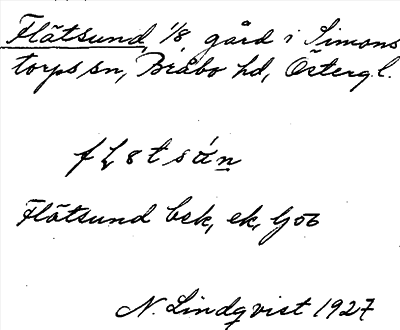 Flätsund, 1/8, gård i Simons
torps sn, Bråbo hd, Östergl.
Flätsund bsk, ek, ljob
N. Lindqvist 1927